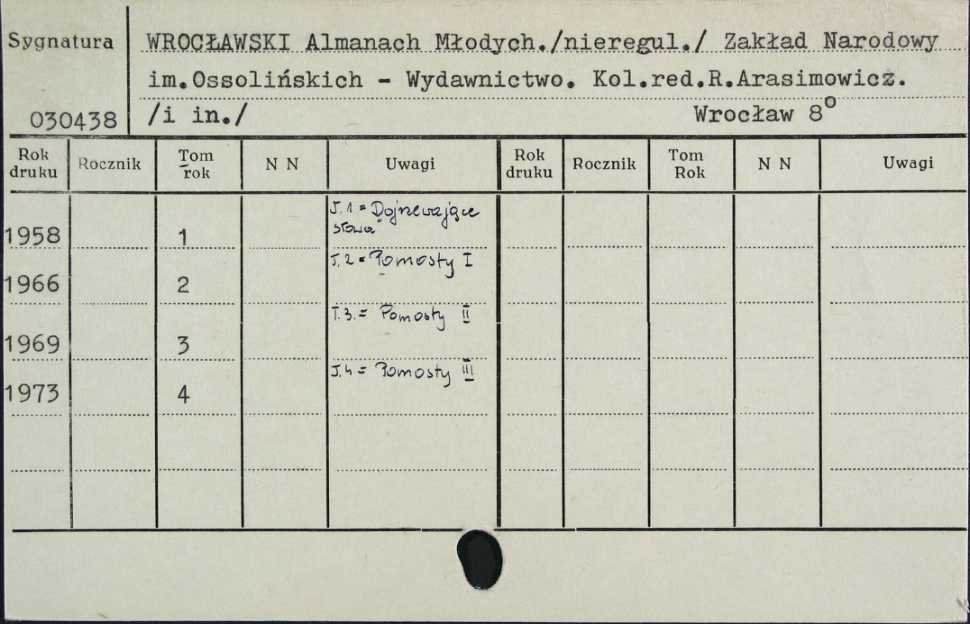 Sygnatura
WROCŁAWSKI Almanach Młodych./nieregul./ Zakład Narodowy
im.Ossolińskich - Wydawnictwo. Kol.red.R.Arasimowicz.
030438 /i in./ Wrocław 8°
Rok druku Rocznik Tom rok N N Uwagi Rok druku Rocznik Tom Rok N N Uwagi
T.1 = Dojrzewające
słowa
1958 1
T.2 = Pomosty I
1966 2
T.3. = Pomosty II
1969 3
T.4 = Pomosty III
1973 4